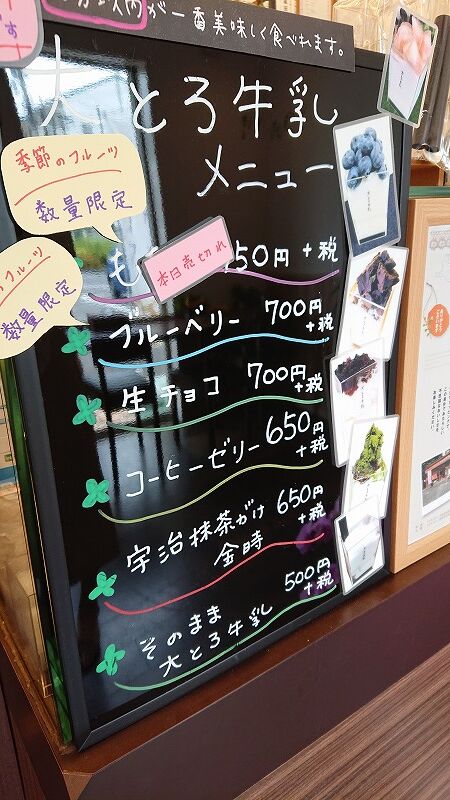 以内が一番美味しく食べれます。
大とろ牛乳
メニュー
季節のフルーツ
数量限定
のフルーツ
数量限定
も
本日売切れ
50円+税
ブルーベリー 700円+税
生チョコ 700円+税
コーヒーゼリー 650円+税
宇治抹茶がけ 650円+税
金時
そのまま 500円+税
大とろ牛乳